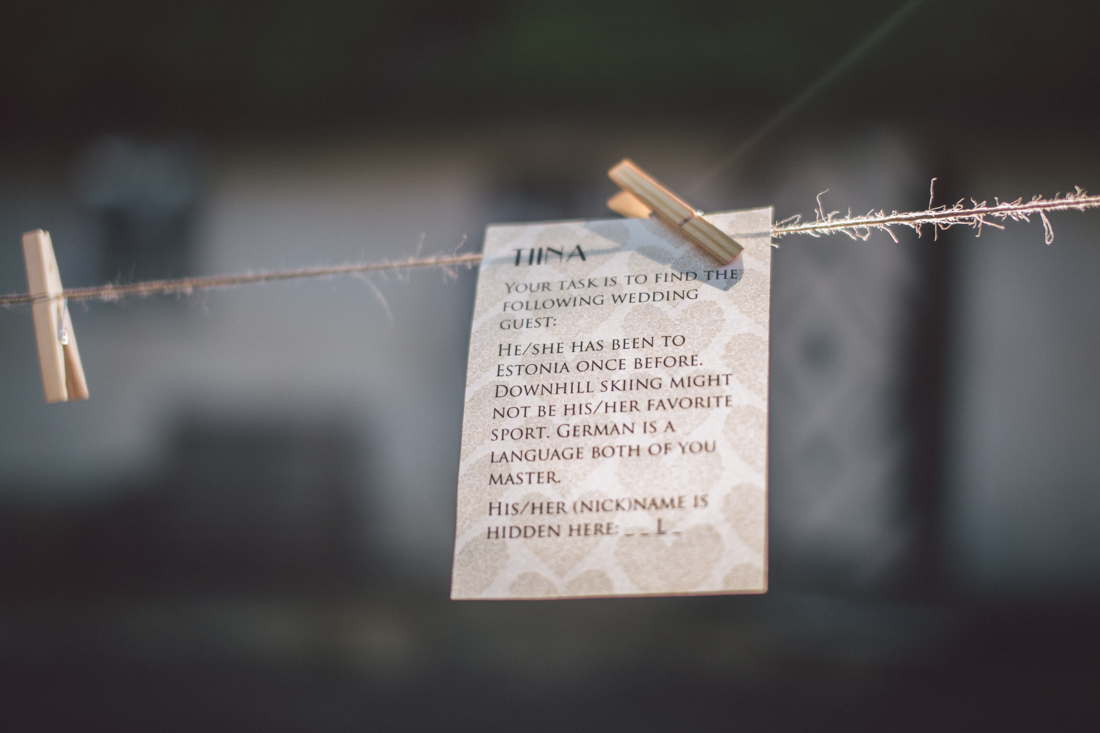 TIINA
YOUR TASK IS TO FIND THE
FOLLOWING WEDDING
GUEST:
HE/SHE HAS BEEN TO
ESTONIA ONCE BEFORE.
DOWNHILL SKIING MIGHT
NOT BE HIS/HER FAVORITE
SPORT. GERMAN IS A
LANGUAGE BOTH OF YOU
MASTER.
HIS/HER (NICK)NAME IS
HIDDEN HERE: _ _ L _